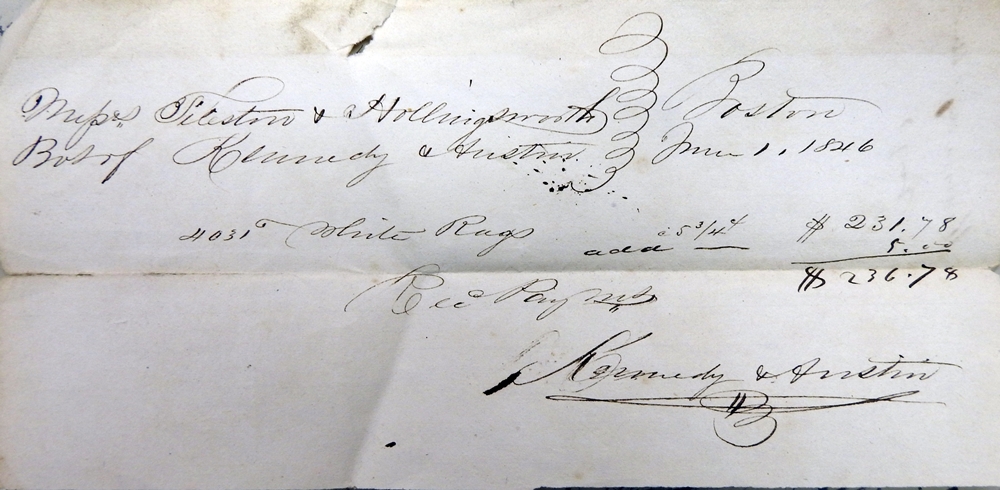 Messrs Tileston & Hollingsworth Boston
Bot of Kennedy & Austin June 1, 1846
4031 White Rags 5 3/4 $ 231.78
add 5.00
$ 236.78
Recd Paymt
Kennedy & Austin